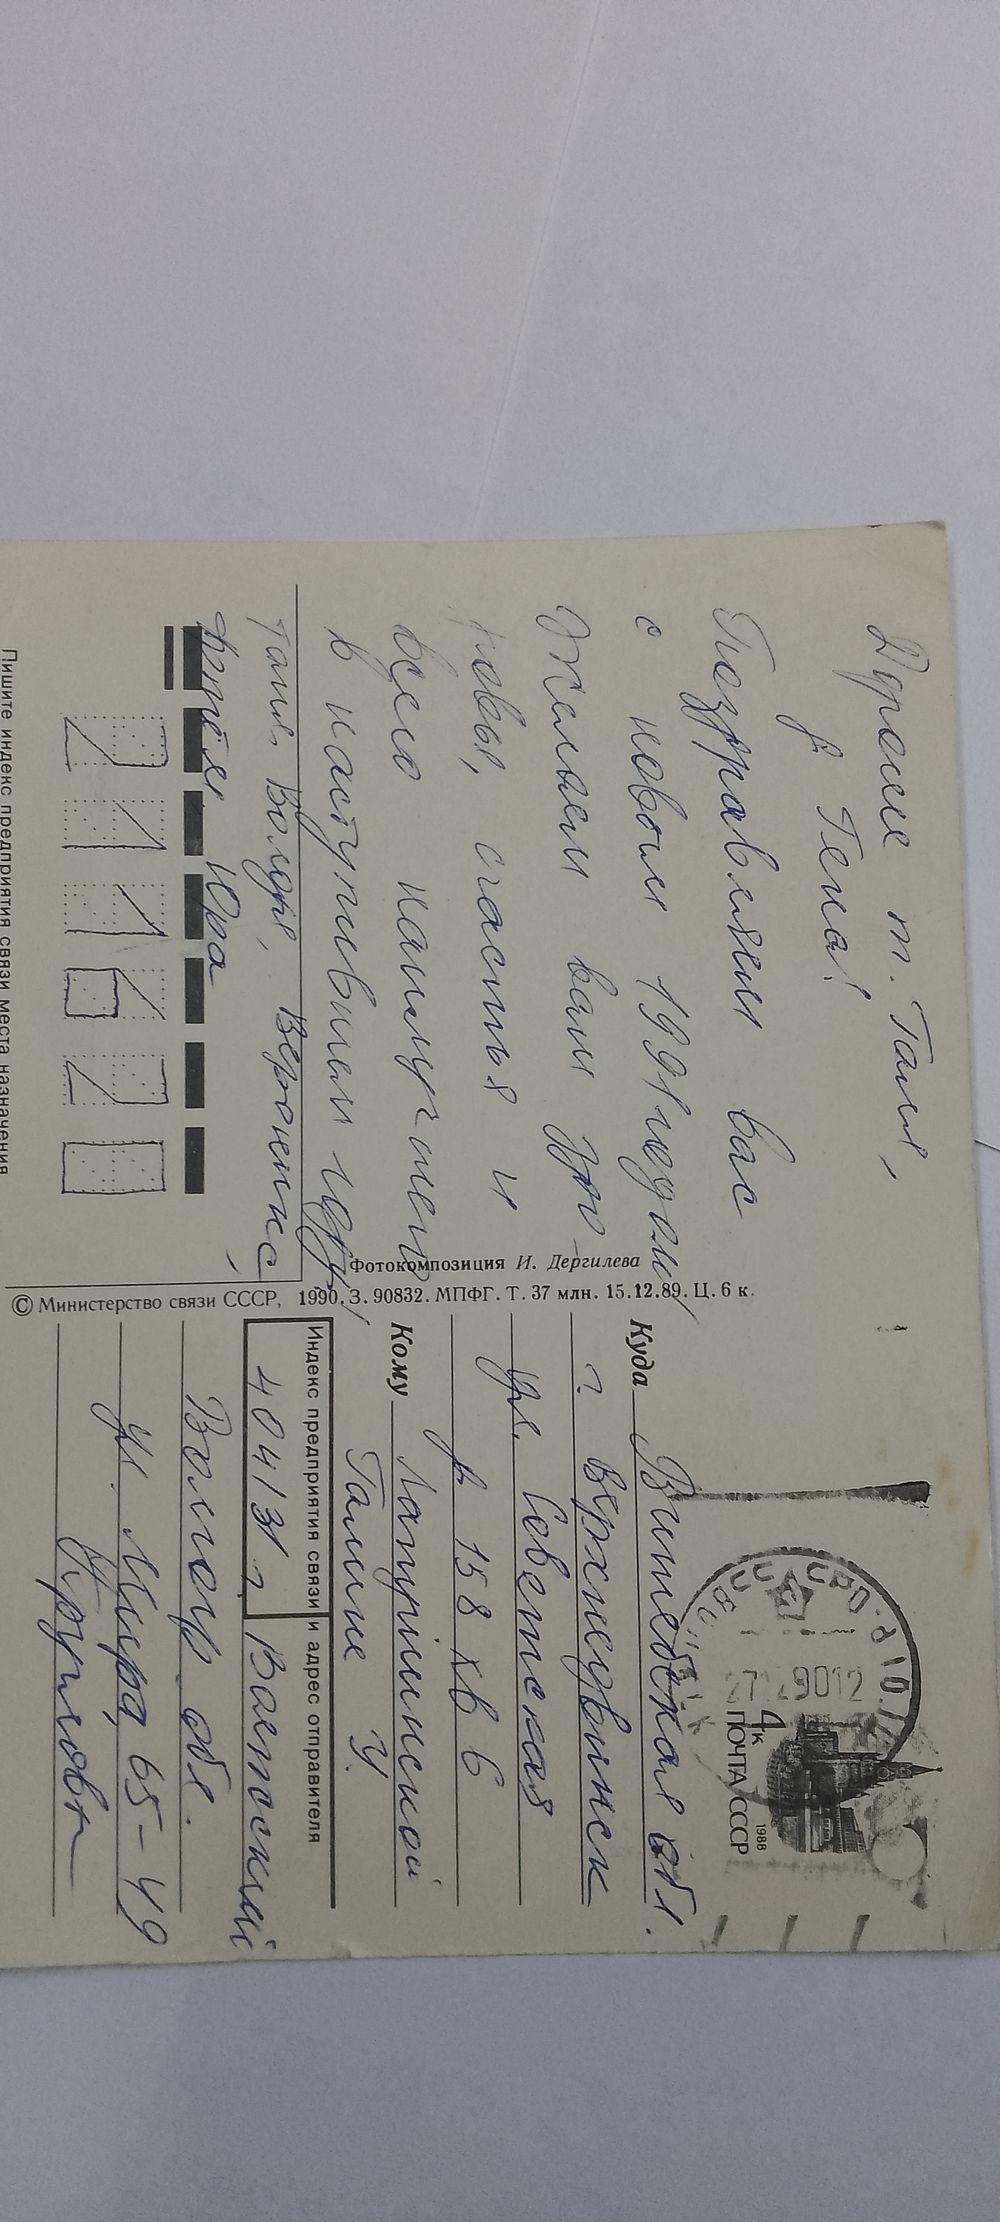 Дорогие т. Галя,
и Гена!
Поздравляем вас
с новым 1991 годом,
Желаем вам здо-
ровья, счастья и
всего наилучшего
в наступившем году,
Галя, Володя, Вероника,
Юра
Пишите индекс предприятия связи места назначения
Фотокомпозиция И. Дергилева
© Министерство связи СССР, 1990. З. 90832. МПФГ. Т. 37 млн. 15.12.89. Ц. 6 к.
4к
ПОЧТА СССР
1988
Куда Витебская обл.
г. Верхнедвинск
ул. Советская
д 158 кв 6
Кому
Галине У.
Индекс предприятия связи и адрес отправителя
404131 г.
Волгогр. обл.
ул. Мира, 65-49